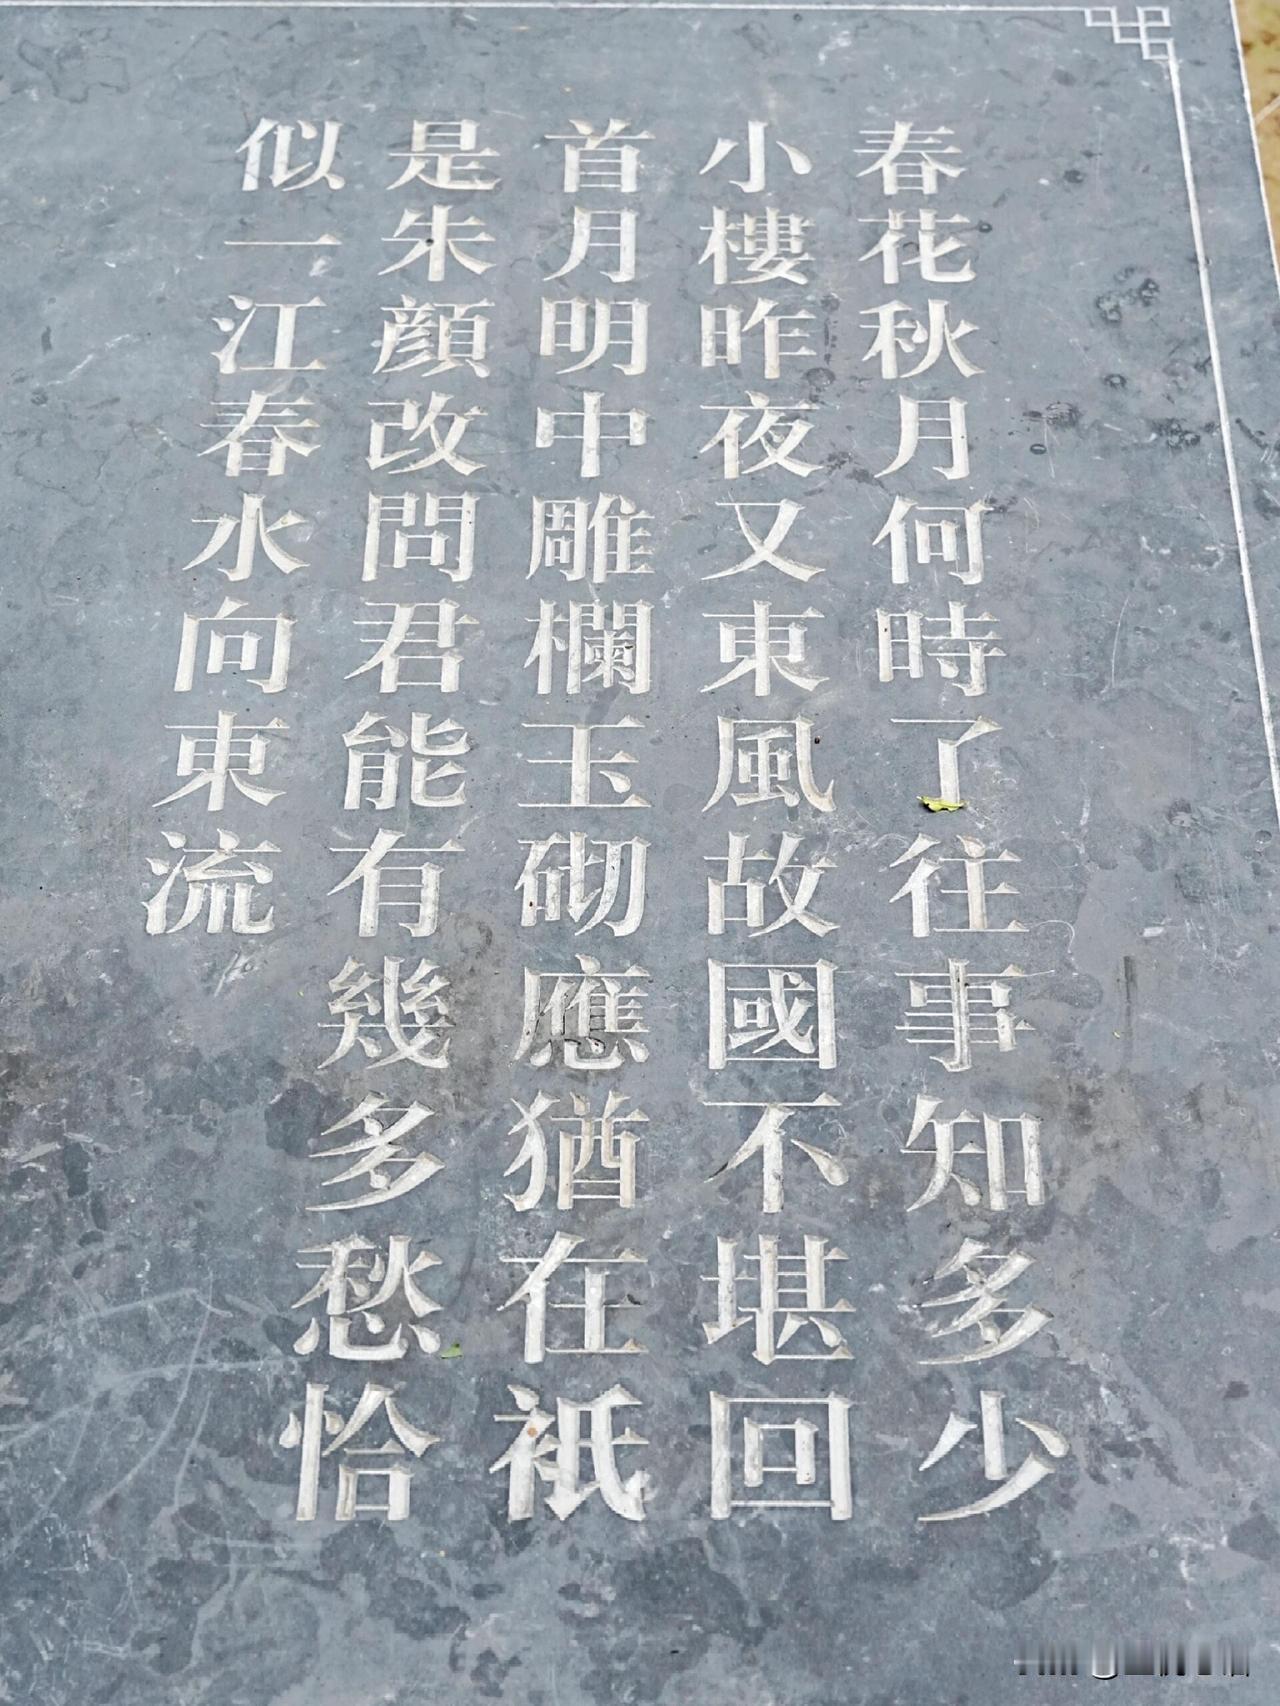 春花秋月何時了往事知多少
小樓昨夜又東風故國不堪回
首月明中雕欄玉砌應猶在衹
是朱顔改問君能有幾多愁恰
似一江春水向東流